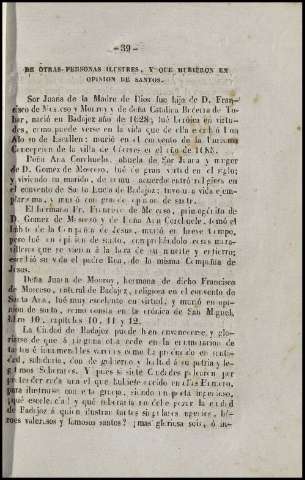 – 39 –
DE OTRAS PERSONAS ILUSTRES, Y QUE MURIERON EN
OPINION DE SANTOS.
Sor Juana de la Madre de Dios fue hija de D. Fran-
cisco de Moscoso y Monroy y de doña Catalina Becerra de To-
bar, nació en Badajoz año de 1628; fué heróica en virtu-
des, como puede verse en la vida que de ella escribió
Alonso de murió en el convento de la Purísima
Concepcion de la villa de Cáceres en el año de 1685.
Doña Ana Corchuelo, abuela de Sor Juana y muger
de D. Gomez de Moscoso, fué de gran virtud en el siglo;
y viviendo su marido, de comun acuerdo entró religiosa en
el convento de Santa Lucía de Badajoz; tuvo una vida ejem-
plarísima, y murió con grande opinion de santa.
El hermano Fr. Francisco de Moscoso, primogénito de
D. Gomez de Moscoso y de Doña Ana Corchuelo, tomó el
hábito de la Compañia de Jesus, murió en breve tiempo,
pero fué en opinion de santo, comprobándolo cosas mara-
villosas que se vieron á la hora de su muerte y entierro;
escribió su vida el padre Roa, de la misma Compañia de
Jesus.
Doña Juana de Monroy, hermana de dicho Francisco
de Moscoso, natural de Badajoz, religiosa en el convento de
Santa Ana, fué muy excelente en virtud, y murió en opi-
nion de santa, como consta en la crónica de San Miguel,
libro 10, capítulos 10, 11 y 12.
La Ciudad de Badajoz puede bien envanecerse, y glo-
riarse de que á ninguna otra cede en la enumeracion de
tantos é innumerables varones como ha producido en santi-
dad, sabiduría, don de gobierno y lealtad á su patria y le-
gítimos Soberanos. Y pues si siete Ciudades pelearon por
pretender cada una el que hubiese nacido en ellas Homero,
para ilustrarse con esta gracia, siendo un poeta superior,
qué escelencia! y qué soberanía no debe poseer la ciudad
de Badajoz á quien ilustran tantos singulares ingenios, hé-
roes valerosos y famosos santos? ¡mas gloriosa sois, ó in-